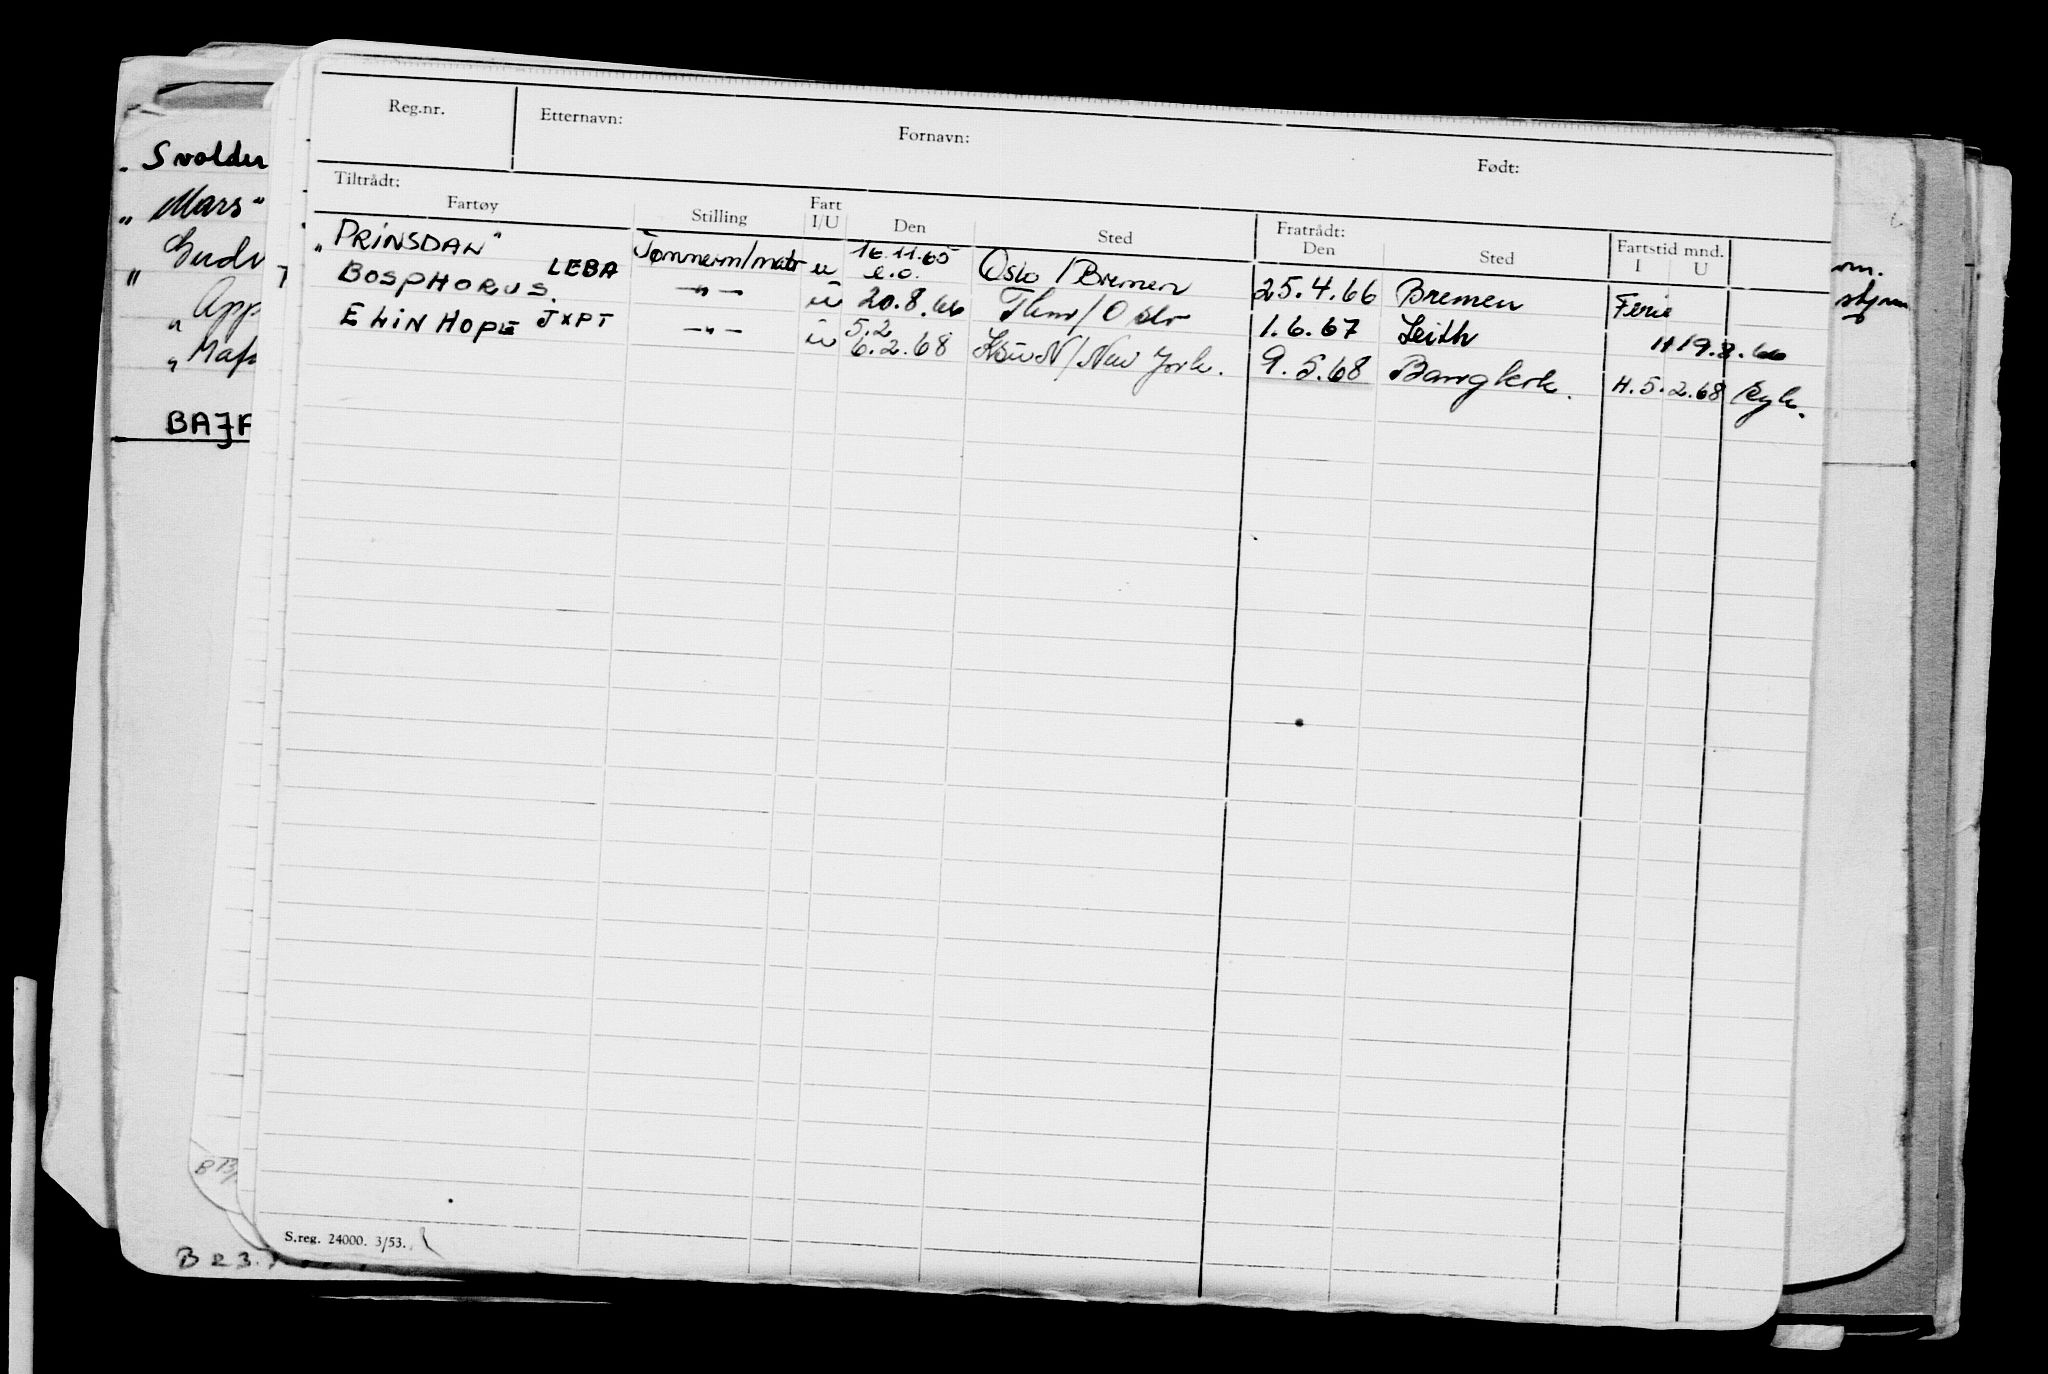 Reg.nr. Etternavn: Fornavn: Født:
Tiltrådt: Fratrådt:
Fartøy Stilling Fart I/U Den Sted Den Sted Fartstid mnd. I U
"PRINSDAN" Tømmerm/matr u 16.11.65 e.o. Oslo / Bremen 25.4.66 Bremen Ferie
BOSPHORUS. LEBA -"- u 20.8.66 Thm/Oslo 1.6.67 Leith H 19.8.66
ELIN HOPE JXPT -"- u 5.2 6.2.68 / New York. 9.5.68 Bangkok. H.5.2.68 Syk.
"Svolder
"Mars"
"
"App
"Maf
BAJF
S.reg. 24000. 3/53.
B 23.